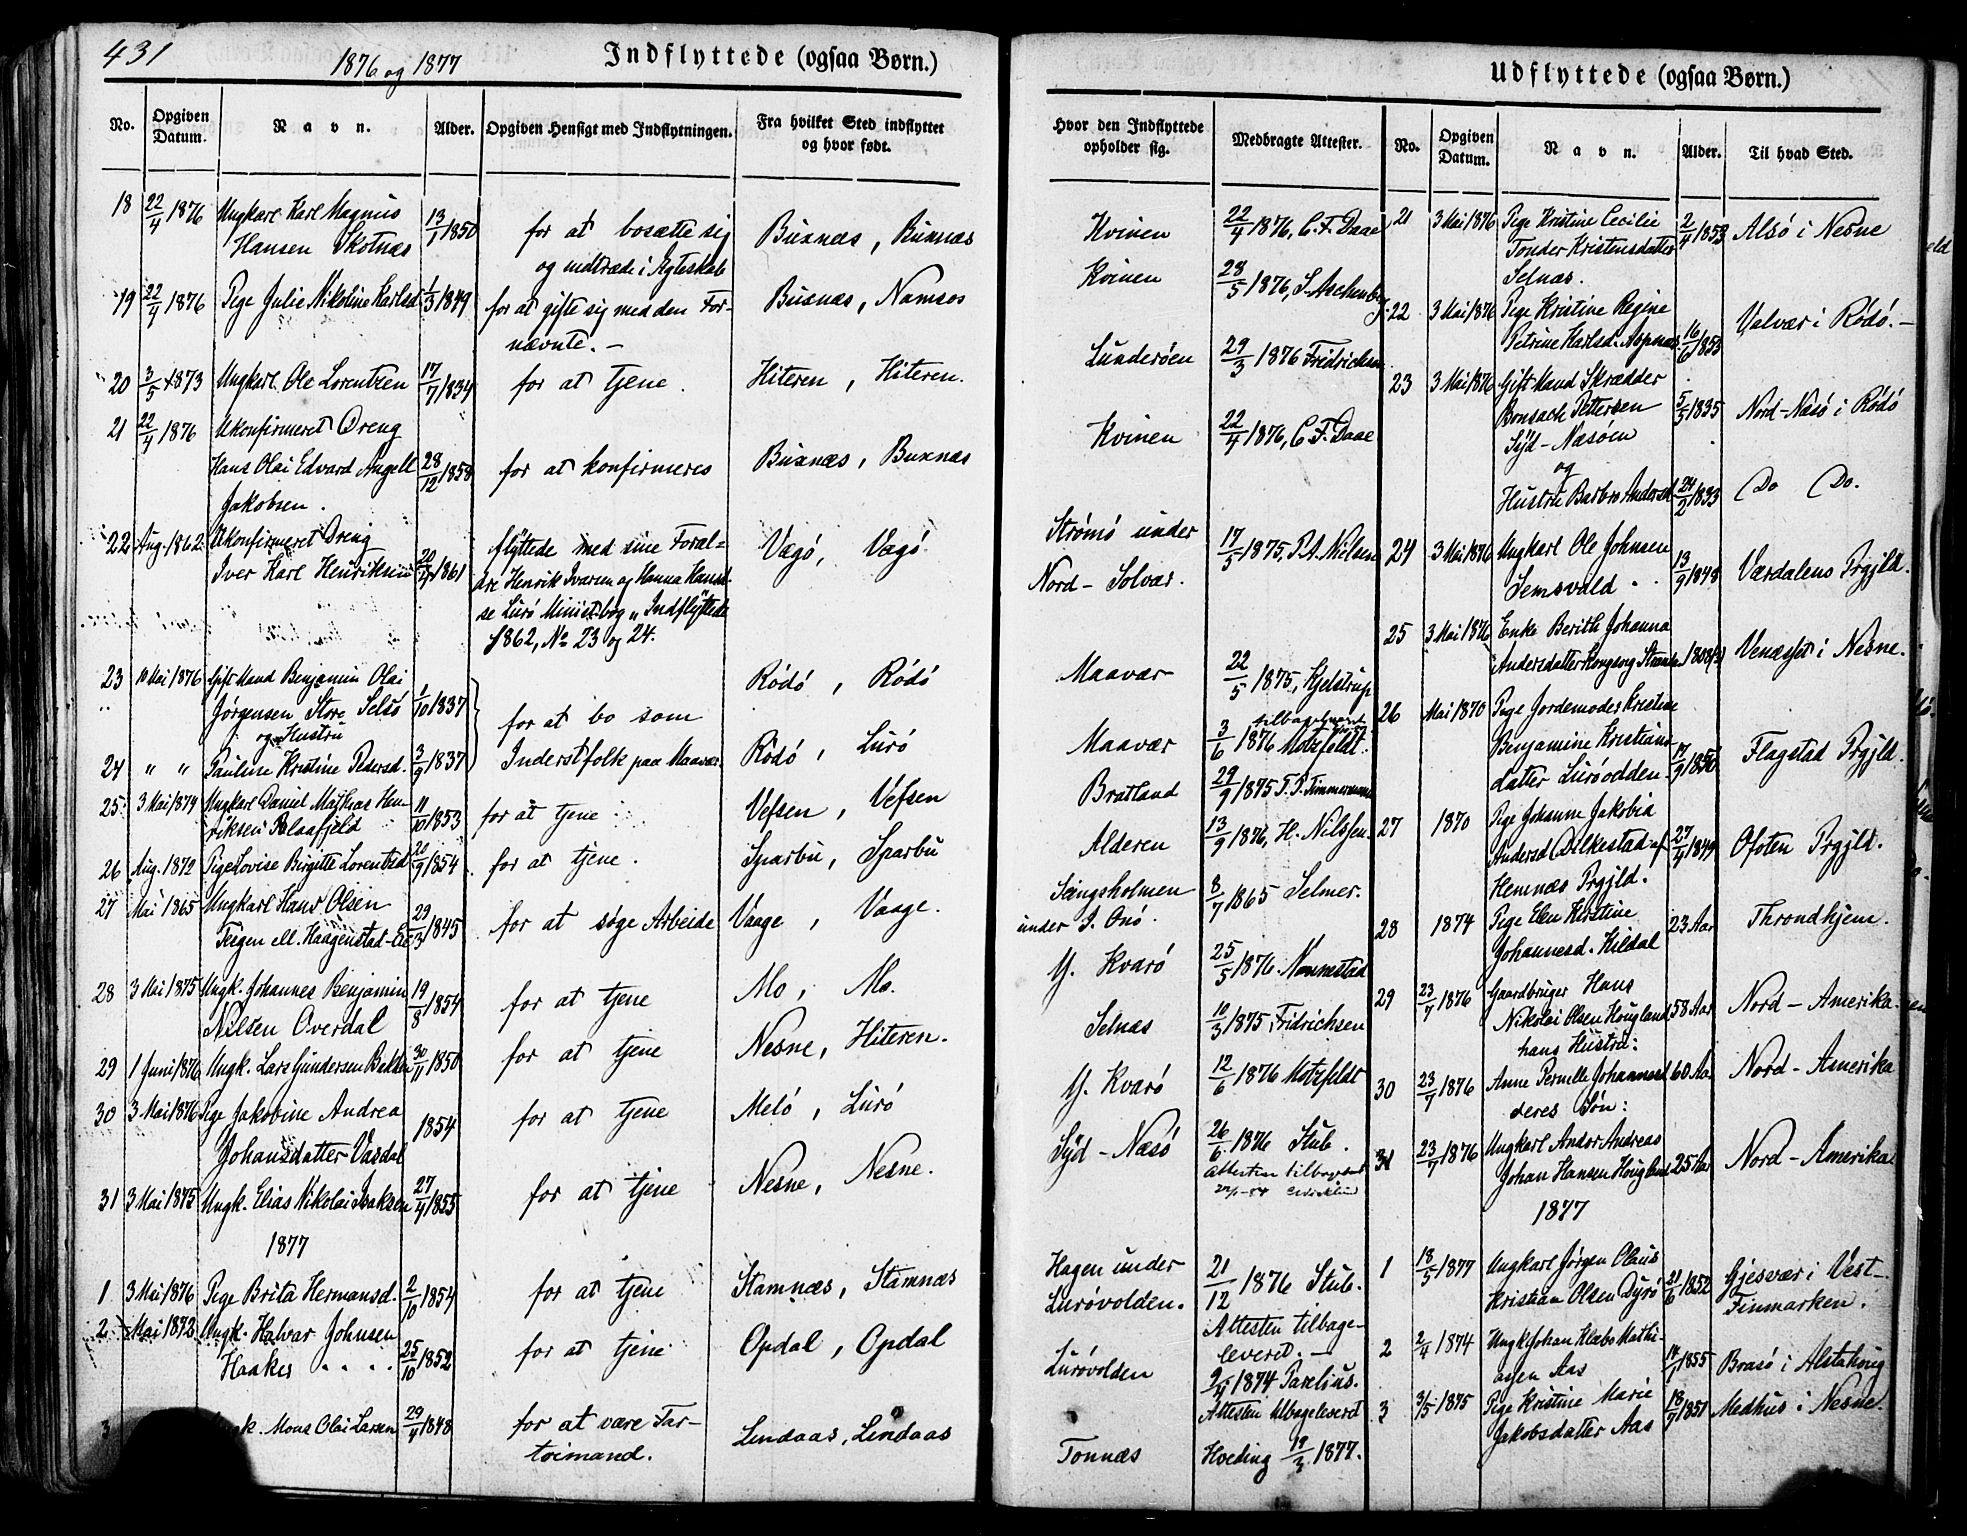 431
1876 og 1877
Indflyttede (ogsaa Børn.)
No.
Opgiven Datum.
Navn.
Alder.
Opgiven Hensigt med Indflytningen.
Fra hvilket Sted indflyttet og hvor født.
18 22/4 1876 Ungkarl Karl Magnus 13/1 1850 for at bosætte sig Buxnæs, Buxnæs
Hansen Skotnæs og indtræde i Ægteskab
19 22/4 1876 Pige Julie Nikoline Karlsd. 1/3 1849 for at gifte sig med den For- Buxnæs, Namsos
nævnte. -
20 3/5 1873 Ungkarl Ole Lorentzen 17/7 1834 for at tjene. Hiteren, Hiteren.
21 22/4 1876 Ukonfirmeret Dreng
Hans Olai Edvard Angell 28/12 1858 for at konfirmeres Buxnæs, Buxnæs
Jakobsen.
22 Aug. 1862 Ukonfirmeret Dreng flyttede med sine Foræl- Vægø, Vægø.
Iver Karl Henriksen 20/4 1861 dre Henrik Ivarsen og Hanna Hansd.
se Lurø Minist.bog "Indflyttede
1862, No 23 og 24.
23 10 Mai 1876 Gift Mand Benjamin Olai Rødø, Rødø
Jørgensen Store Selsø 1/10 1837 for at bo som
og Hustru
24 " " Pauline Kristine Pedersd. 3/9 1837 Inderstfolk paa Maavær. Rødø, Lurø
25 3 Mai 1874 Ungkarl Daniel Mathias Hen- 11/10 1853 for at tjene Vefsen, Vefsen
riksen Blaafjeld
26 Aug. 1872 Pige Lovise Birgitte Lorentsd. 20/9 1854 for at tjene. Sparbu, Sparbu
27 Mai 1865 Ungkarl Hans Olsen
Tergen ell. Haagenstad-Eie 29/3 1845 for at søge Arbeide Vaage, Vaage.
28 3 Mai 1875 Ungk. Johannes Benjamin 19/8 1854 for at tjene Mo, Mo.
Nilsen Overdal
29 1 Juni 1876 Ungk. Lars Gundersen Bekken 30/11 1850 for at tjene Nesne, Hiteren.
30 3 Mai 1876 Pige Jakobine Andrea 1854 for at tjene Melø, Lurø
Johansdatter Vasdal
31 3 Mai 1875 Ungk. Elias Nikolai Isaksen 27/4 1855 for at tjene Nesne, Nesne.
1877
1 3 Mai 1876 Pige Brita Hermansd. 2/10 1854 for at tjene Stamnæs, Stamnæs
2 Mai 1872 Ungk. Halvar Johnsen
Haaker 25/10 1852 for at tjene Opdal, Opdal
3 Mons Olai Larsen 29/4 1848 for at være Far- Lindaas, Lindaas
tøimand.
Udflyttede (ogsaa Børn.)
Hvor den Indflyttede opholder sig.
Medbragte Attester.
No.
Opgiven Datum.
Navn.
Alder.
Til hvad Sted.
Kvinen 22/4 1876, C. F. Daae
Kvinen 28/5 1876, S. Aschenberg
Lunderøen 29/3 1876 Fridrichsen
Kvinen 22/4 1876, C. F. Daae
Strømø under
Nord-Solvær. 17/5 1875, P. A. Nielsen
Maavær 22/5 1875, Kjelstrup
Maavær 3/6 1876 Motzfeldt.
Bratland 29/9 1875 T. P. Timmermann
Alderen 13/9 1876, H. Nilssen
Seingsholmen
under I. Onø. 8/7 1865 Selmer.
Y. Kvarø 25/5 1876. Nannestad
Selnæs 10/3 1875 Fridrichsen
Y. Kvarø 12/6 1876 Motzfeldt
Syd-Næsø 26/6 1876 Stub.
Attesten tilbagesendt
Hagen under
Lurøvolden. 21/12 1876 Stub.
Attesten tilbage-
leveret. -
Lurøvolden 2/4 1874 Parelius.
Attesten tilbageleveret
Tonnæs Hveding 19/3 1877.
21 3 Mai 1876 Pige Kristine Cecilie 2/4 1853 Alsø i Nesne
Tonder Kristensdatter
Selnæs.
22 3 Mai 1876 Pige Kristine Regine
Petrine Karlsd. Aspnæs. 16/6 1853 Valvær i Rødø. -
23 3 Mai 1876 Gift Mand Skrædder
Bonsach Pettersen 5/5 1835 Nord-Næsø i Rødø
Syd-Næsøen
og
Hustru Barbro Andersd. 24/2 1833 Do Do.
24 3 Mai 1876 Ungkarl Ole Johnsen
Semsvald 13/9 1848 Værdalens Prgjld.
25 3 Mai 1876 Enke Berith Johanna
Andersdatter Kongsvg Strand Venæset i Nesne.
26 Mai 1870 Pige Jordemoder Kristine
Benjamine Kristians-
datter Lurøvolden 17/9 1850 Flagstad Prgjld.
27 1870 Pige Johanne Jakobia
Andersd. Dilkestad af 27/4 1849 Ofoten Prgjld.
Hemnæs Prgjld.
28 1874 Pige Elen Kirstine 23 Aar Throndhjem.
Johannesd. Kildal
29 23/7 1876 Gaardbruger Hans
Nikolai Olsen Hougland 58 Aar Nord-Amerika.
hans Hustru:
30 23/7 1876 Anne Pernelle Johannesd. 60 Aar Nord-Amerika
deres Søn:
31 23/7 1876 Ungkarl Andor Andreas
Johan Hansen Hougland 25 Aar Nord-Amerika
1877
1 18/5 1877 Ungkarl Jørgen Olaus
Kristian Olsen Dyrø 21/6 1852 Gjesvær i Vest-
Finmarken.
2 2/4 1874 Ungk Johan Klæbo Mathi-
asen Aas 14/1 1855 Brasø i Alstahoug
3 3/5 1875 Pige Kristine Marie 18/7 1851 Medhus i Nesne
Jakobsdatter Aas